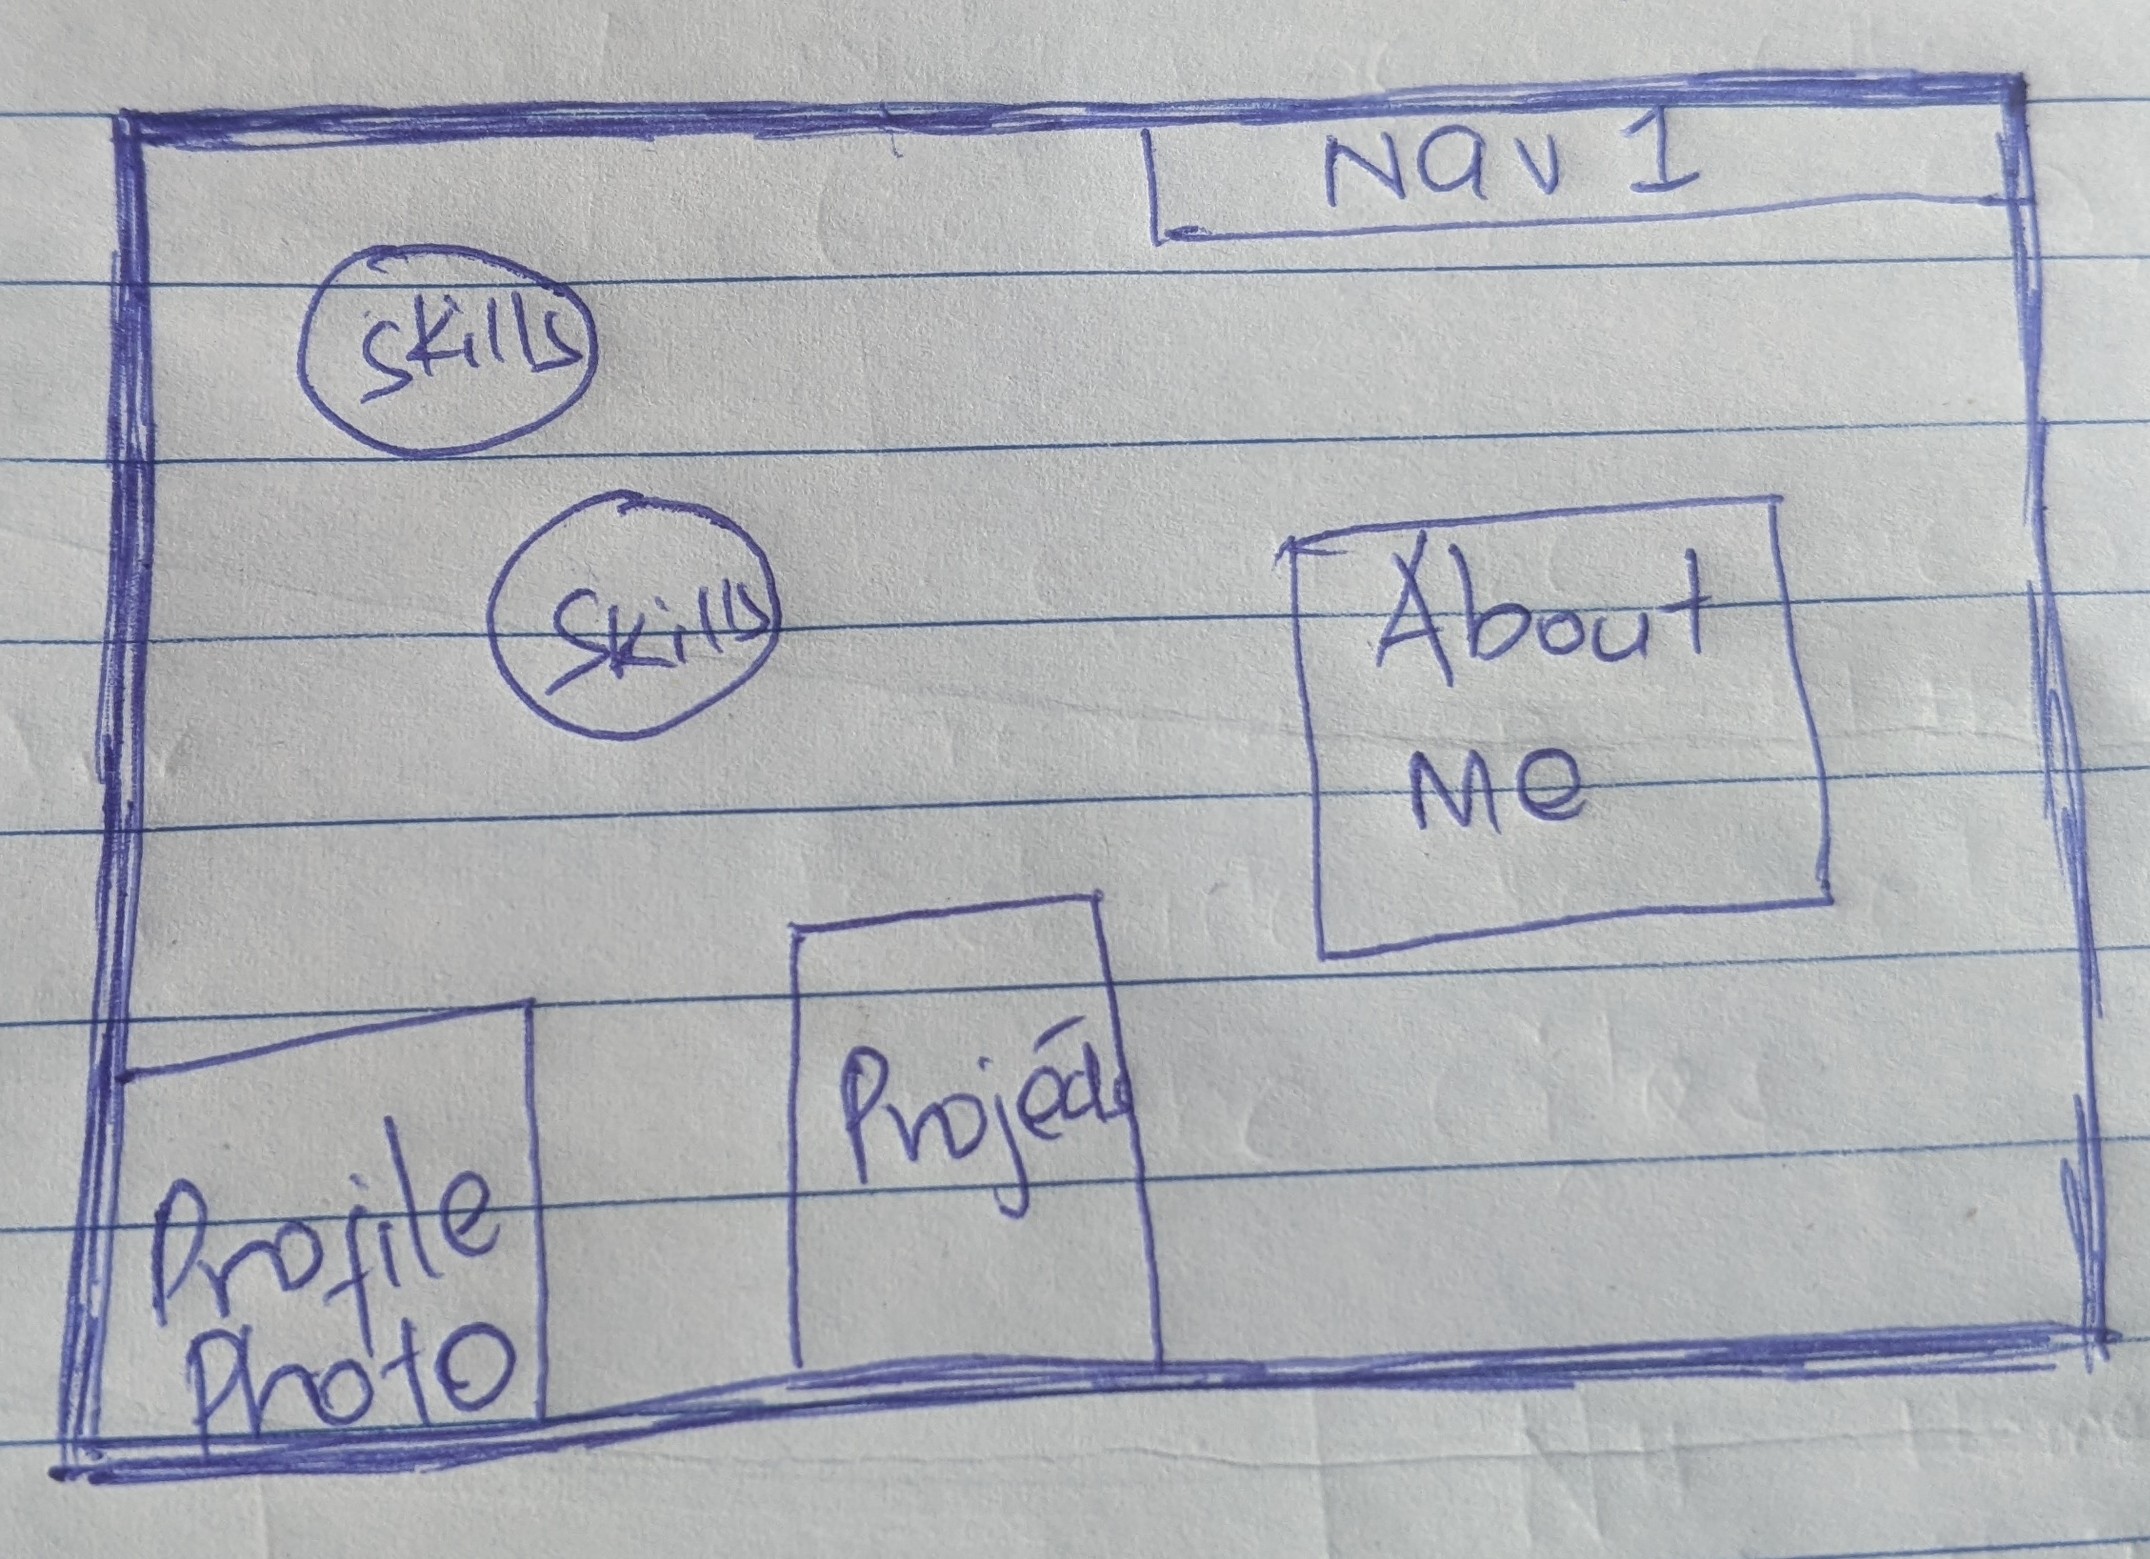 Nav 1
Skills
Skills
About
Me
Projects
Profile
Photo